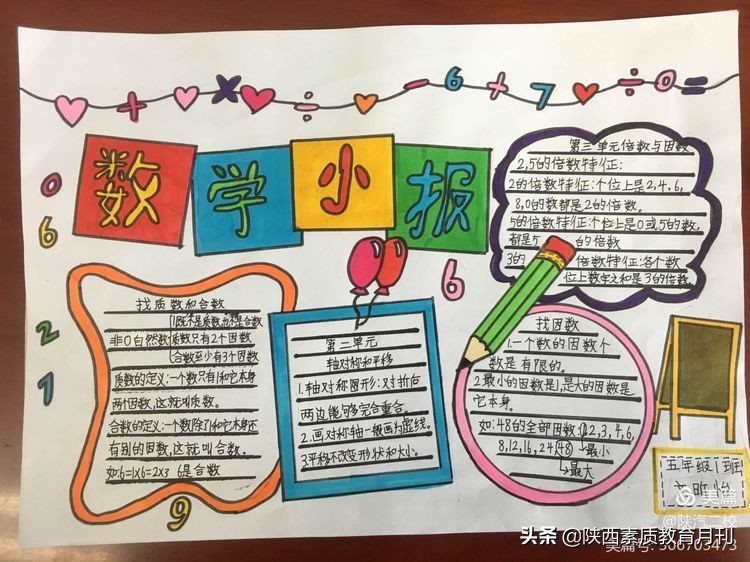 数学小报
+ × ÷ - 6 + 7 ÷ 0 =
0
6
2
7
6
9
第三单元倍数与因数
2,5的倍数特征:
2的倍数特征:个位上是2,4,6,
8,0的数都是2的倍数。
5的倍数特征:个位上是0或5的数,
都是5的倍数
3的倍数特征:各个数
位上数字之和是3的倍数
找质数和合数
1既不是质数,也不是合数
非0自然数质数只有2个因数
合数至少有3个因数
质数的定义:一个数只有1和它本身
两个因数,这就叫质数。
合数的定义:一个数除了1和它本身还
有别的因数,这就叫合数。
如:6=1×6=2×3 6是合数
第二单元
轴对称和平移
1.轴对称图形:对折后
两边能够完合重合。
2.画对称轴一般画为虚线。
3.平移不改变形状和大小。
找因数
1.一个数的因数个
数是有限的。
2.最小的因数是1,最大的因数是
它本身。
如:48的全部因数:1,2,3,4,6,
8,12,16,24,48
最小
最大
五年级1班
美篇
@陕汽二校
头条 @陕西素质教育月刊
美篇号: 306703473